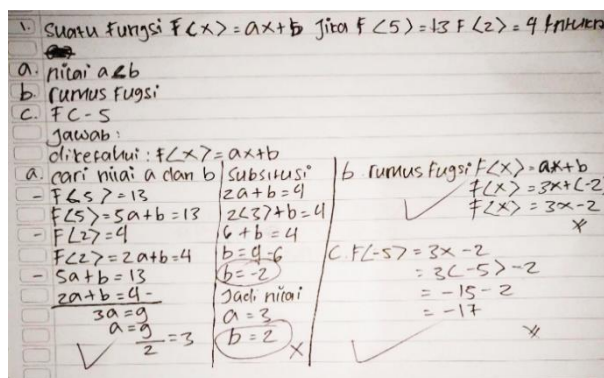 1. Suatu Fungsi F(x) = ax+b Jika F(5) = 13 F(2) = 4
a. nilai a & b
b. rumus Fugsi
c. F(-5
Jawab :
diketahui : F(x) = ax+b
a. cari nilai a dan b
- F(5) = 13
F(5) = 5a+b = 13
- F(2) = 4
F(2) = 2a+b = 4
- 5a+b = 13
2a+b = 4 -
3a = 9
a = 9/2 = 3
Subsitusi
2a+b = 4
2(3)+b = 4
6+b = 4
b = 4-6
b = -2
Jadi nilai
a = 3
b = 2
b rumus Fugsi F(x) = ax+b
F(x) = 3x+(-2
F(x) = 3x-2
C. F(-5) = 3x-2
= 3(-5)-2
= -15-2
= -17